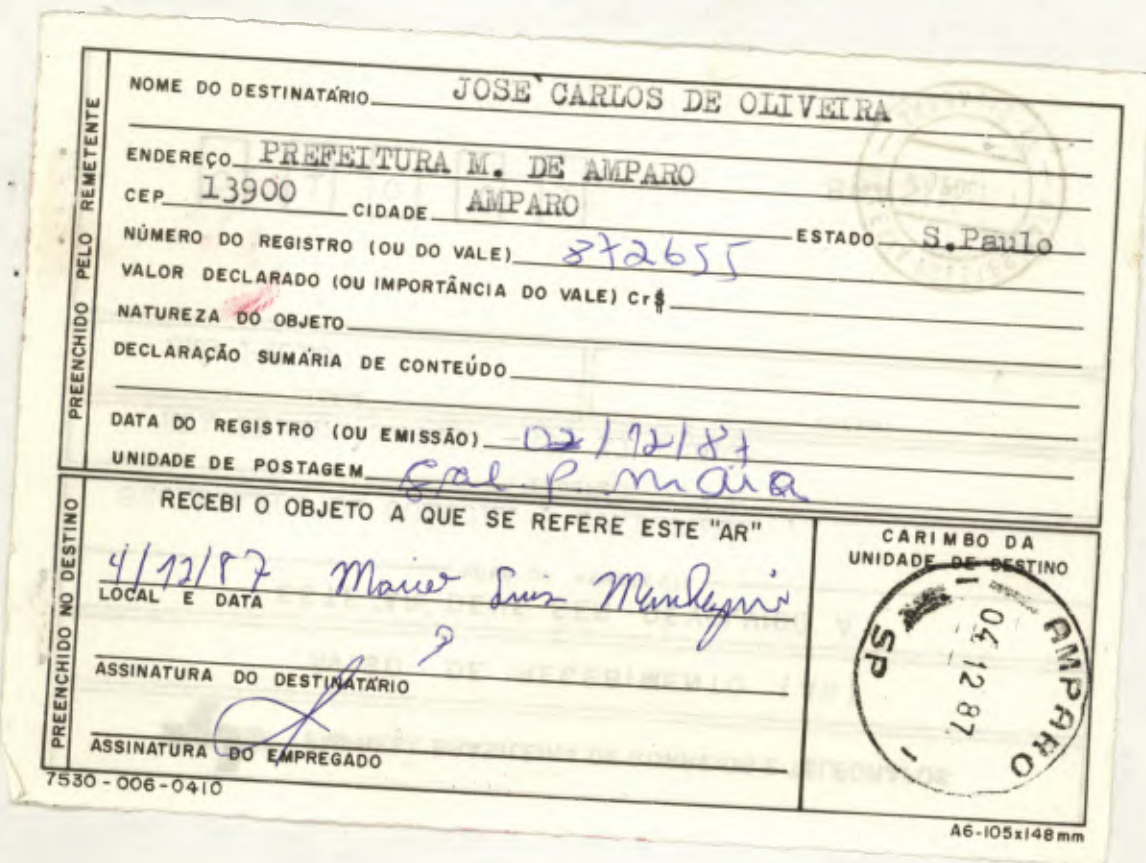 PREENCHIDO PELO REMETENTE
NOME DO DESTINATÁRIO JOSE CARLOS DE OLIVEIRA
ENDEREÇO PREFEITURA M. DE AMPARO
CEP 13900 CIDADE AMPARO ESTADO S.Paulo
NÚMERO DO REGISTRO (OU DO VALE) 872655
VALOR DECLARADO (OU IMPORTÂNCIA DO VALE) Cr$
NATUREZA DO OBJETO
DECLARAÇÃO SUMÁRIA DE CONTEÚDO
DATA DO REGISTRO (OU EMISSÃO) 02/12/87
UNIDADE DE POSTAGEM
PREENCHIDO NO DESTINO
RECEBI O OBJETO A QUE SE REFERE ESTE "AR"
4/12/87
LOCAL E DATA
ASSINATURA DO DESTINATÁRIO
ASSINATURA DO EMPREGADO
CARIMBO DA
UNIDADE DE DESTINO
AMPARO
04 12 87
SP
7530-006-0410
A6-105x148mm